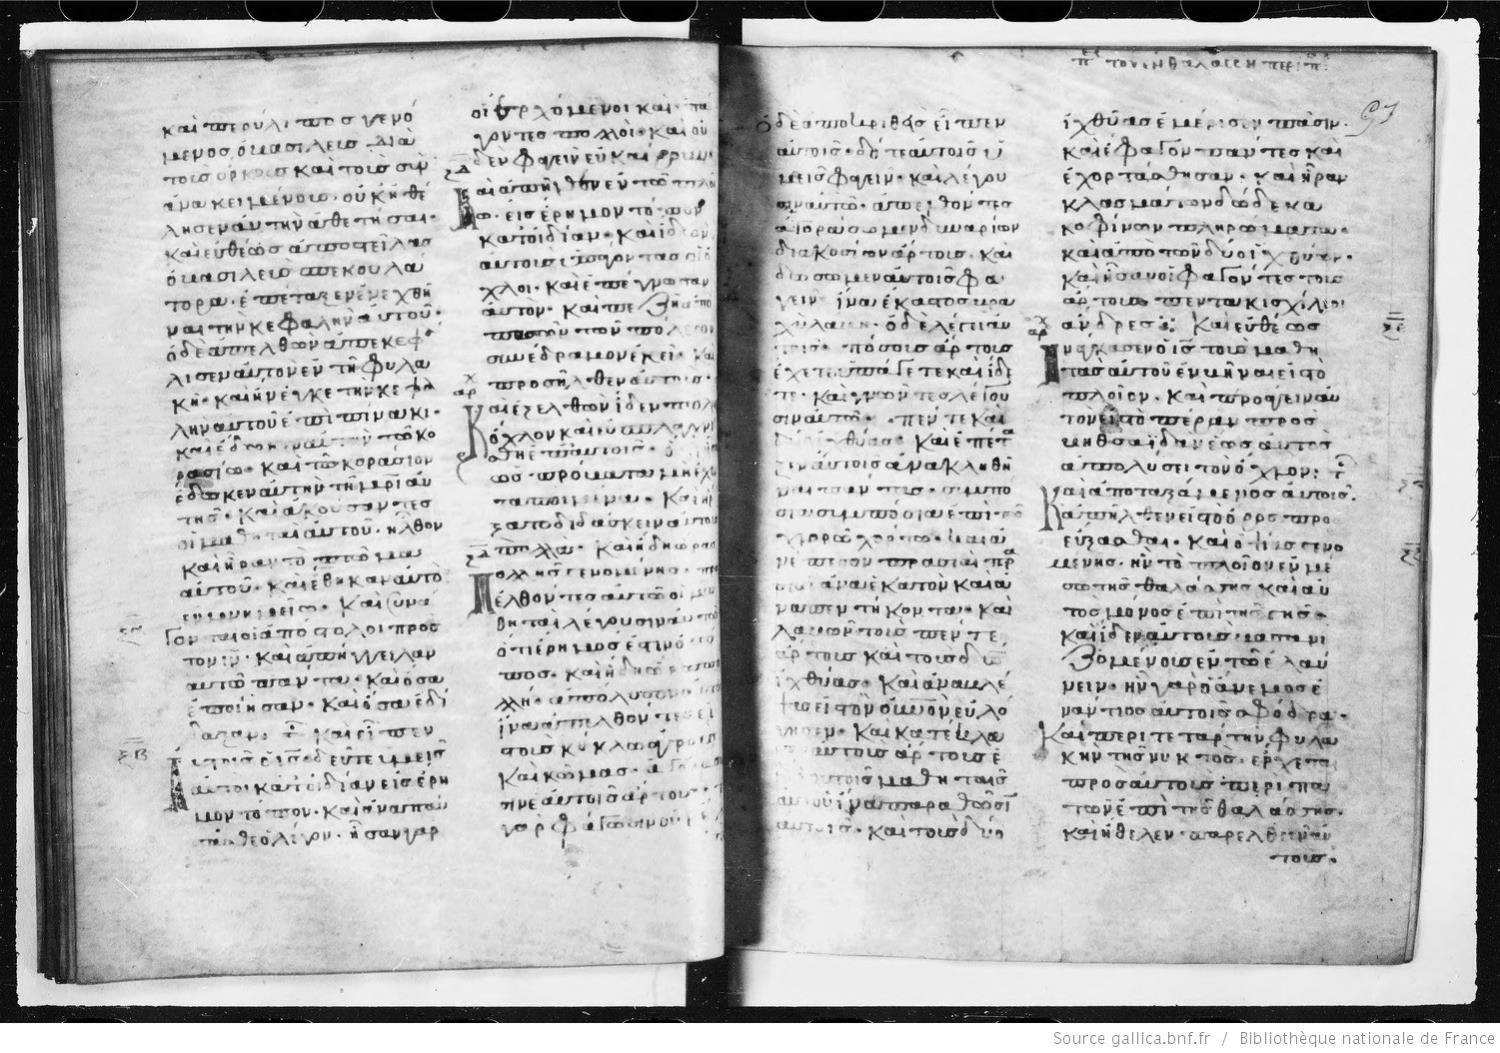 καὶ περύλιπος γενό
μενος ὁ βασιλεὺς διὰ
τοὺς ὅρκους καὶ τοὺς συν
ανακειμένους· οὐκ ἠθέ
λησεν αὐτὴν ἀθετῆσαι·
καὶ εὐθέως ἀποστείλας
ὁ βασιλεὺς σπεκουλά
τορα· ἐπέταξεν ἐνεχθῆ
ναι τὴν κεφαλὴν αὐτοῦ·
ὁ δὲ ἀπελθὼν ἀπεκεφ
λισεν αὐτὸν ἐν τῆ φυλα
κῆ· καὶ ἤνεγκε τὴν κεφα
λὴν αὐτοῦ ἐπὶ πίνακι·
καὶ ἔδωκεν αὐτὴν τῶ κο
ρασίω· καὶ τὸ κοράσιον
ἔδωκεν αὐτὴν τῆ μητρὶ αὐ
τῆς· καὶ ἀκούσαντες
οἱ μαθηταὶ αὐτοῦ· ἦλθον
καὶ ἦραν τὸ πτῶμα
αὐτοῦ· καὶ ἔθηκαν αὐτὸ
ἐν μνημείω· Καὶ συνά
γονται οἱ ἀπόστολοι πρὸς
τὸν ἰν· καὶ ἀπήγγειλαν
αὐτῶ πάντα· καὶ ὅσα
ἐποίησαν· καὶ ὅσα ἐδί
δαξαν· Καὶ εἶπεν
αὐτοῖς ὁ ις· δεῦτε ὑμεῖς
αὐτοὶ κατ᾽ ἰδίαν εἰς ἔρη
μον τόπον· καὶ ἀναπαύ
σασθε ὀλίγον· ἦσαν γὰρ
οἱ ἐρχόμενοι καὶ ὑπά
γοντες πολλοὶ· καὶ οὐ
δὲν φαγεῖν εὐκαίρουν·
Καὶ ἀπῆλθον ἐν τῶ πλοί
ω· εἰς ἔρημον τόπον
κατ᾽ ἰδίαν· καὶ ἴδον
αὐτοὺς ὑπάγοντας οἱ ὄ
χλοι· καὶ ἐπέγνωσαν
αὐτὸν· καὶ πεζῆ ἀπὸ
πασῶν τῶν πόλεων
συνέδραμον ἐκεῖ· καὶ
προσῆλθεν αὐτοῖς·
Καὶ ἐξελθὼν ἴδεν πολὺ
ὄχλον καὶ εὐσπλαγχνί
σθη ἐπ᾽ αὐτοῖς·
ὡς πρόβατα μὴ ἔχο
τα ποιμένα· Καὶ ἤρ
ξατο διδάσκειν αὐτοὺς
πολλὰ· Καὶ ἤδη ὥρας
πολλῆς γενομένης· προ
σελθόντες αὐτῶ οἱ μα
θηταὶ λέγουσιν αὐτῶ
ὅτι ἔρημός ἐστιν ὁ τό
πος· καὶ ἤδη ὥρα πολ
λή· ἀπόλυσον αὐτοὺς
ἵνα ἀπελθόντες εἰς
τοὺς κύκλω ἀγροὺς
καὶ κώμας· ἀγορά
σωσιν ἑαυτοῖς ἄρτους· τί
γὰρ φάγωσιν οὐκ ἔχ
π τον ἐν θαλάσση περίπ
97
ὁ δὲ ἀποκριθεὶς εἶπεν
αὐτοῖς· δότε αὐτοῖς ὑ
μεῖς φαγεῖν· καὶ λέγου
σιν αὐτῶ· ἀπελθόντες
ἀγοράσωμεν δηναρίων
διακοσίων ἄρτους· καὶ
δώσωμεν αὐτοῖς φα
γεῖν· ἵνα ἕκαστος βρα
χύ λάβη· ὁ δὲ λέγει αὐ
τοῖς· πόσους ἄρτους
ἔχετε ὑπάγετε καὶ ἴδε
τε· καὶ γνόντες λέγου
σιν αὐτῶ· πέντε καὶ
δύο ἰχθύας· Καὶ ἐπέτα
ξεν αὐτοῖς ἀνακληθῆ
ναι πάντας· συμπό
σια συμπόσια ἐπὶ τῶ
χλωρῶ χόρτω· καὶ ἀ
νέπεσον πρασιαὶ πρ
σιαὶ· ἀνὰ ἑκατὸν καὶ ἀ
νὰ πεντήκοντα· Καὶ
λαβὼν τοὺς πέντε
ἄρτους καὶ τοὺς δύο
ἰχθύας· Καὶ ἀναβλέ
ψας εἰς τὸν οὐνὸν εὐλό
γησεν· Καὶ κατέκλα
σεν τοὺς ἄρτους ἐ
δίδου τοῖς μαθηταῖς
αὐτοῦ ἵνα παραθῶσιν
αὐτοῖς· καὶ τοὺς δύο
ἰχθύας ἐμέρισεν πᾶσιν·
καὶ ἔφαγον πάντες καὶ
ἐχορτάσθησαν· καὶ ἦραν
κλασμάτων δώδεκα
κοφίνων πληρώματα·
καὶ ἀπὸ τῶν δύο ἰχθύων·
καὶ ἦσαν οἱ φαγόντες τοὺς
ἄρτους πεντακισχίλιοι
ἄνδρες· Καὶ εὐθέως
ἠνάγκασεν ὁ ις τοὺς μαθη
τὰς αὐτοῦ ἐμβῆναι εἰς τὸ
πλοῖον· Καὶ προάγειν αὐ
τὸν εἰς τὸ πέραν πρὸς
βηθσαϊδὰν ἕως αὐτὸς
ἀπολύσει τὸν ὄχλον·
Καὶ ἀποταξάμενος αὐτοῖς·
ἀπῆλθεν εἰς τὸ ὄρος προ
σεύξασθαι· Καὶ ὀψίας γενο
μένης· ἦν τὸ πλοῖον ἐν μέ
σω τῆς θαλάσσης καὶ αὐ
τὸς μόνος ἐπὶ τῆς γῆς·
καὶ ἴδεν αὐτοὺς βασανι
ζομένους ἐν τῶ ἐλαύ
νειν· ἦν γὰρ ὁ ἄνεμος ἐ
ναντίος αὐτοῖς σφόδρα·
Καὶ περὶ τετάρτην φυλα
κὴν τῆς νυκτὸς· ἔρχεται
πρὸς αὐτοὺς περιπα
τῶν ἐπὶ τῆς θαλάσσης·
καὶ ἤθελεν παρελθεῖν αὐ
τούς·
Source gallica.bnf.fr / Bibliothèque nationale de France